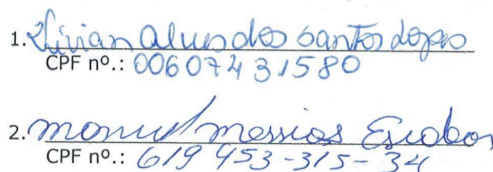 1. Vivian Alves dos Santos Lopes
CPF nº.: 00607431580
2. Manuel Messias Escobar
CPF nº.: 619 453-315-34